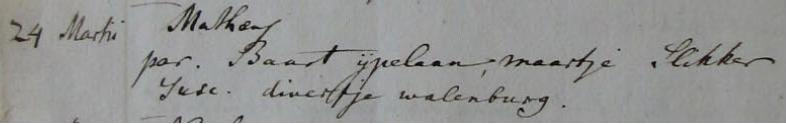 24 Martii Matheus
par. Baart ijpelaan, maartje Slikker
Susc. divertje walenburg.